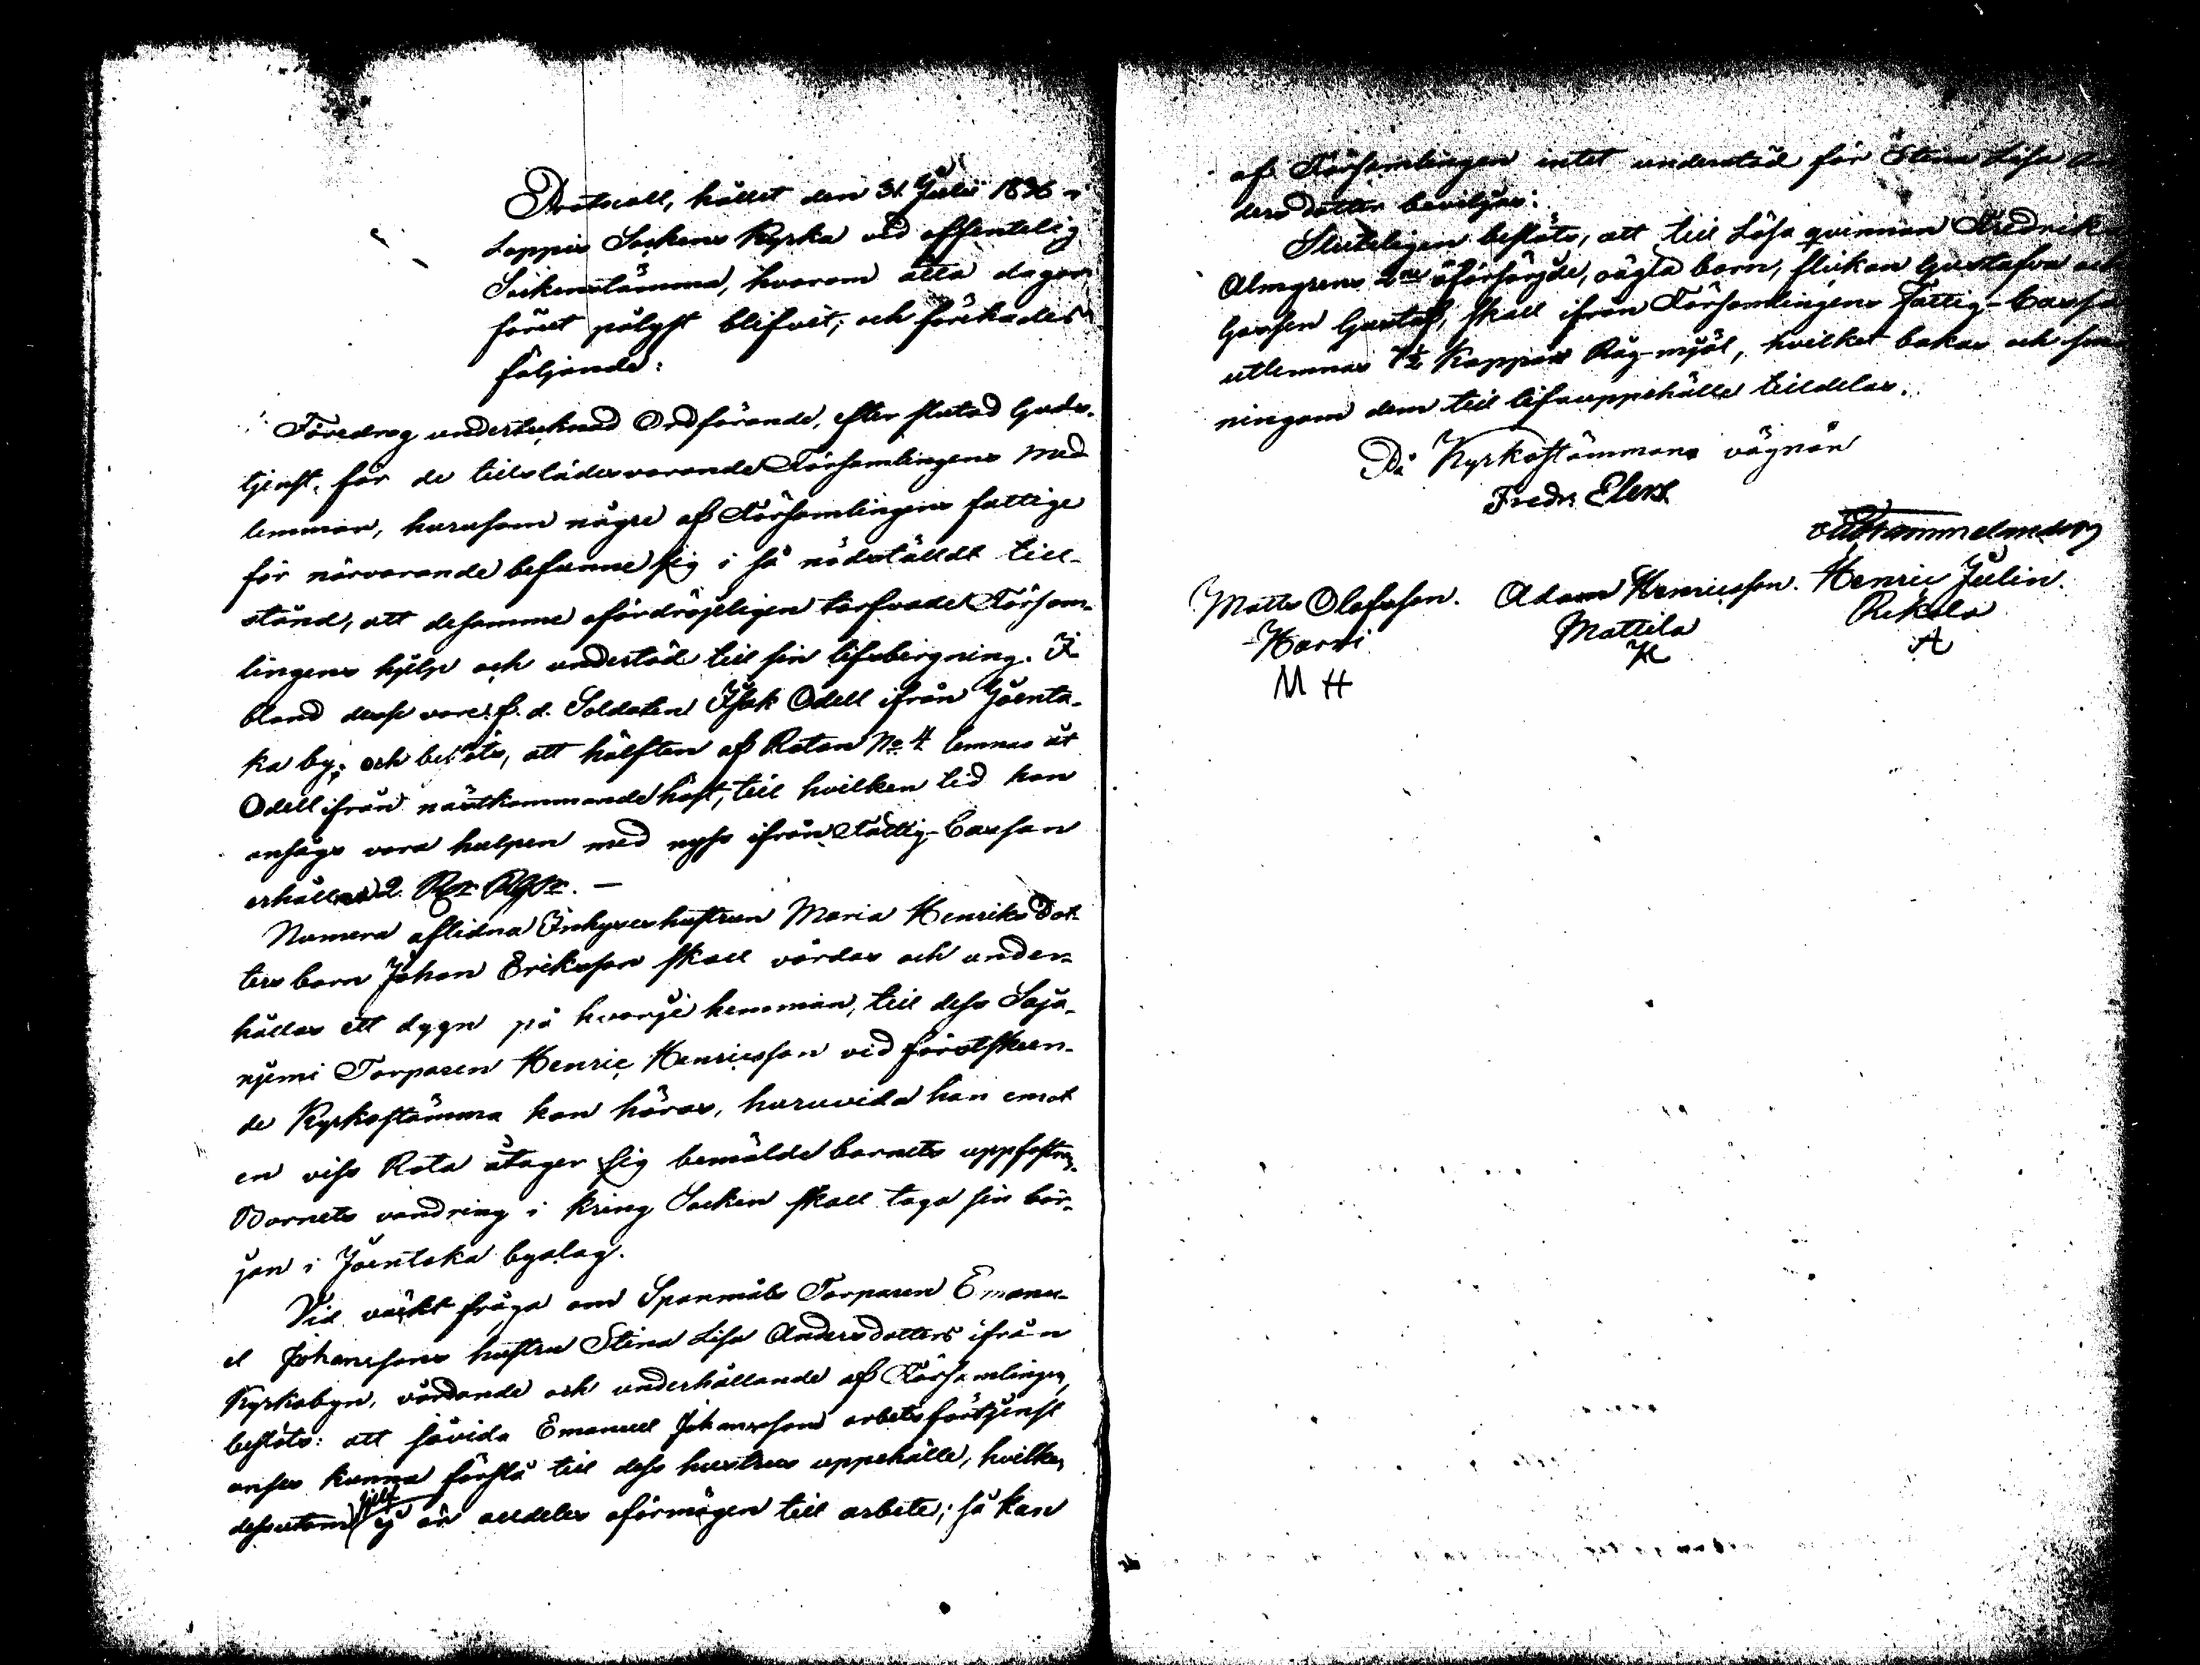 Protocoll, hållet den 31 Julii 1836 i
Loppis Sockens Kyrka vid offentelig
Sockenstämma, hvarom åtta dagar
förut pålyst blifvit; och förekades
följande:
Föredrog undertecknad Ordförande, efter slutad Guds-
tjenst, för de tillstädesvarande Församlingens med
lemmar, hurusom någre af Församlingens fattige
för närvarande befunne sig i så nödstäldt till-
stånd, att desamme ofördröjeligen tarfvade Försam-
lingens hjelp och understöd till sin lifsbergning. I
bland desse vore f. d. Soldaten Isak Odell ifrån Joenta-
ka by; och beslöts, att hälften af Rotan No 4 lemnas åt
Odell ifrån nästkommande höst, till hvilken tid han
ansågs vara hulpen med nyss ifrån Fattig-Cassan
erhållna 2. Rr Rgsr. —
Numera aflidna Inhyseshustrun Maria Henriks Dot-
ters barn Johan Eriksson skall vårdas och under-
hållas ett dygn på hvarje hemman, till dess Saja-
njemi Torparen Henric Henricsson vid förstskeen-
de Kyrkostämma kan höras, huruvida han emot
en viss Rota åtager sig bemälde barnets uppfostran.
Barnets vandring i kring Socken skall taga sin bör-
jan i Joentaka byalag.
Vid väckt fråga om Spanmåls Torparen Emanu-
el Johanssons hustru Stina Lisa Andersdotters ifrån
Kyrkobyn, vårdande och underhållande af Församlingen,
beslöts: att såvida Emanuel Johanssons arbetsförtjenst
anses kunna förslå till dess hustrus uppehälle, hvilken
dessutom sjelf ej är alldeles oförmögen till arbete; så kan
af Församlingen intet understöd för Stina Lisa An
dersdotter beviljas:
Sluteligen beslöts, att till Lösa qvinnan Fredrika
Almgrens 2ne oförsörgde, oägta barn, flickan Gustafva och
Gossen Gustaf, skall ifrån Församlingens Fattig-Cassa
utlemnas 7½ Kappar Råg-mjöl, hvilket bakas och
ningom dem till lifsuppehälle tilldelas.
På Kyrkostämmans vägnar
Fredr. Elers
Matts Olofsson. Adam Henricsson. Henric Julin.
Harvi Mattila Rikala
M H K A